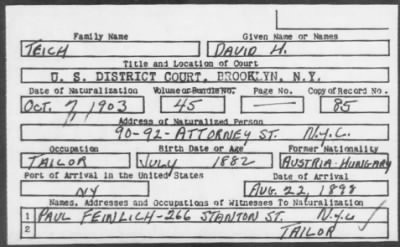 Family Name Given Name or Names
TEICH DAVID H.
Title and Location of Court
U. S. DISTRICT COURT, BROOKLYN, N.Y.
Date of Naturalization Volume or Bundle No. Page No. Copy of Record No.
OCT. 7, 1903 45 — 85
Address of Naturalized Person
90-92-ATTORNEY ST. N.Y.C.
Occupation Birth Date or Age Former Nationality
TAILOR JULY 1882 AUSTRIA-HUNGARY
Port of Arrival in the United States Date of Arrival
NY AUG. 22, 1898
Names, Addresses and Occupations of Witnesses To Naturalization
1 PAUL FEINLICH-266 STANTON ST. N.Y.C
2 TAILOR